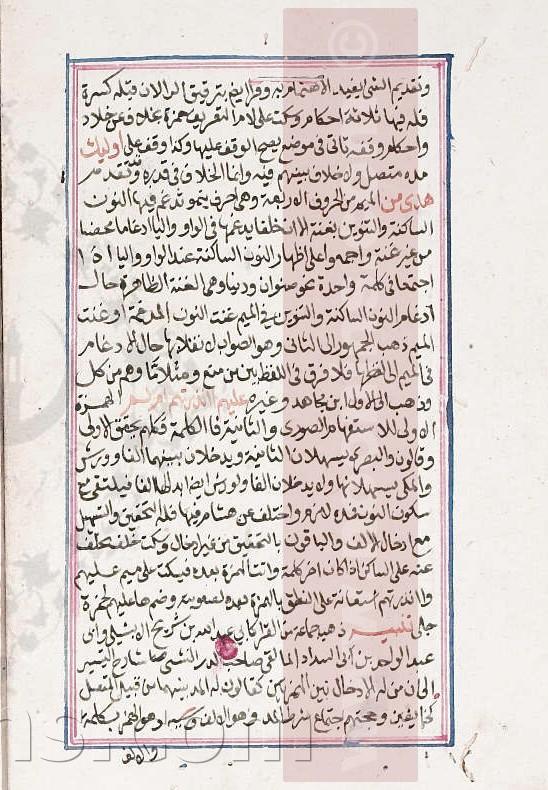 وتقديم الشئ يفيد الاهتمام به وقرا ايضا بترقيق الرا لان قبله كسرة
فله فيها ثلاثة احكام وسكت على لام التعريف حمزة بخلاف عن خلاد
واحكام وقفه تاتى فى موضع يصح الوقف عليها وكذا وقفه على اوليك
مده متصل ولا خلاف بينهم فيه وانما الخلاف فى قدره وتقدم
هدى من من الحروف الاربعة وهى احرف ينمو تدغم فيها النون
الساكنة والتنوين بغنة الا ان خلفا يدغمها فى الواو واليا ادغاما محضا
من غير غنة واجمعوا على اظهار النون الساكنة عند الواو واليا اذا
اجتمعا فى كلمة واحدة نحو صنوان ودنيا وهى الغنة الظاهرة حال
ادغام النون الساكنة والتنوين فى الميم غنة النون المدغمة او غنت
الميم ذهب الجمهور الى الثانى وهو الصواب لانقلابها حال الادغام
فى الميم الى لفظها فلا فرق فى اللفظ بين من منع و مثلا ما وهم من كل
وذهب الى الاول ابن مجاهد وغيره عليهم اانذرتهم الهمزة
الاولى للاستفهام الصورى والثانية فا الكلمة فكلهم يحقق الاولى
وقالون والبصرى يسهلان الثانية ويدخلان بينهما الفا وورش
والمكى يسهلانها ولا يدخلان الفا ولورش ايضا ابدالها الفا فيلتقى مع
سكون النون فمده لازم واختلف عن هشام فيها فله التحقيق والتسهيل
مع ادخال الالف والباقون بالتحقيق من غير ادخال وسكت خلف بخلف
عنه على الساكن اذا كان اخر كلمة واتت الهمزة بعده فيسكت على ميم عليهم
واانذرتهم استعانة على النطق بالهمزة بعده لصعوبته وضم ها عليهم لحمزة
جلى تنبيه ذهب جماعة من القرا كابى عبد الله بن شريح الاشبيلى وابى
عبد الواحد بن ابى السداد المالقى صاحب الدر النثير شارح التيسير
الى ان من له الادخال بين الهمزتين كقالون له المد بينهما من قبيل المتصل
كخايفين وحجتهم اجتماع شرط المد وهو الالف وسببه وهو الهمز بكلمة
والالف